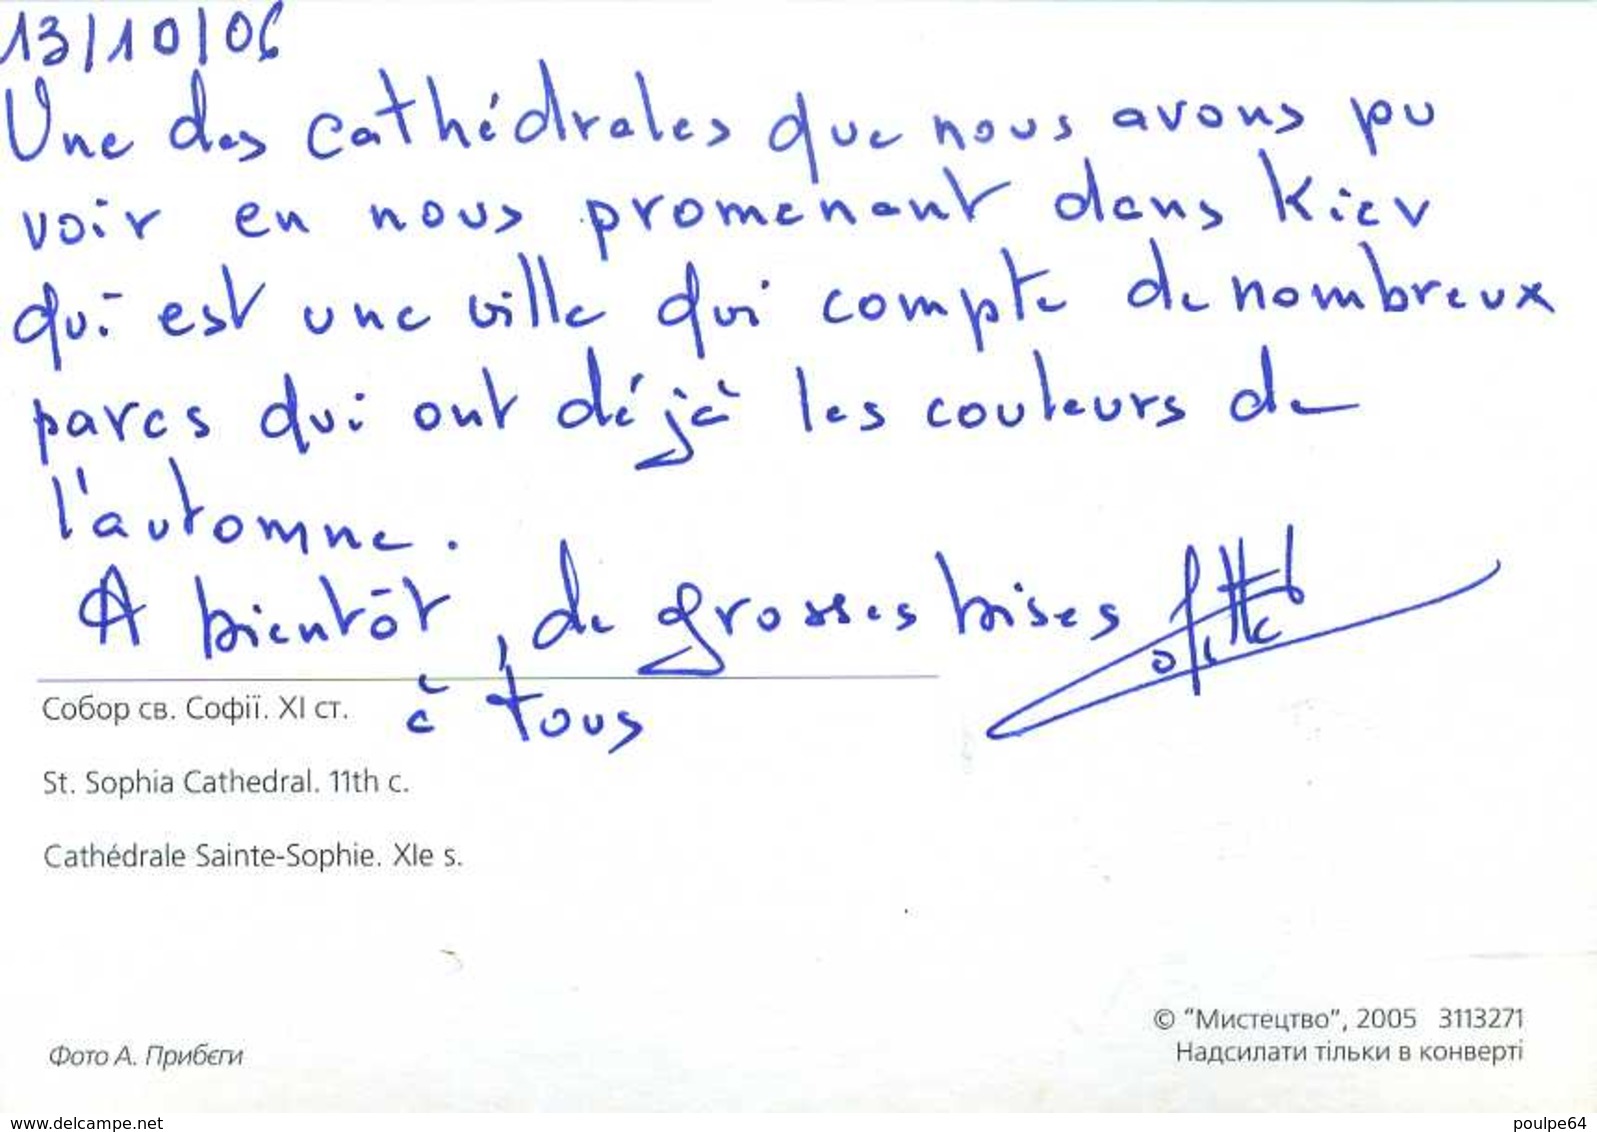 13/10/06
Une des cathédrales que nous avons pu
voir en nous promenant dans Kiev
qui est une ville qui compte de nombreux
parcs qui ont déjà les couleurs de
l'automne.
A bientôt, de grosses bises
à tous
Собор св. Софії. XI ст.
St. Sophia Cathedral. 11th c.
Cathédrale Sainte-Sophie. XIe s.
Фото А. Прибєги
© "Мистецтво", 2005 3113271
Надсилати тільки в конверті
www.delcampe.net
poulpe64